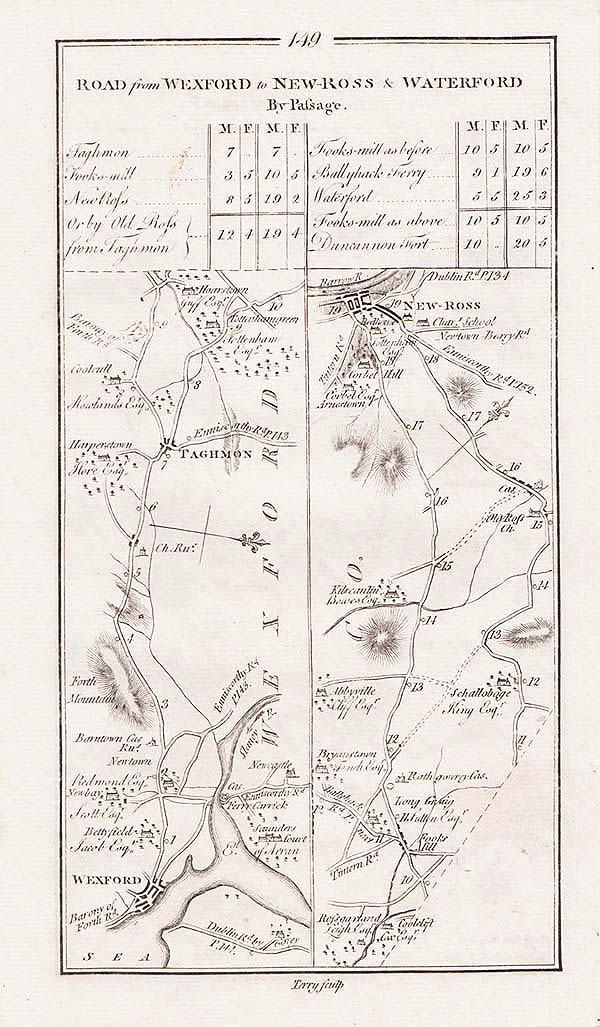 149
ROAD from WEXFORD to NEW-ROSS & WATERFORD
By Paſsage.
M. F. M. F.
Taghmon 7 .. 7 ..
Fooks-mill 3 5 10 5
New Roſs 8 5 19 2
Or by Old Roſs
from Taghmon } 12 4 19 4
M. F. M. F.
Fooks-mill as before 10 5 10 5
Ballyhack Ferry 9 1 19 6
Waterford 5 5 25 3
Fooks-mill as above 10 5 10 5
Duncannon Fort 10 .. 20 5
Hoarstown
Goff Esqr.
10
Tottenhamgreen
Tottenham
Esqr.
Barony of
Forth Rd.
9
8
Coolcull
Howlands Esqr.
Enniscorthy Rd. P. 143
Harperstown
Hore Esqr.
TAGHMON
7
6
Ch. Rus.
5
4
Forth
Mountain
3
Enniscorthy Rd.
P. 143.
Barntown Cas.
Rus.
Newtown
Redmond Esqr.
Newbay
Scott Esqr.
2
Slaney R.
Newcastle
Cas.
Enniscorthy Rd.
Ferry Carrick
Bettyfield
Jacob Esqr.
1
Saunders
Court
El. of Arran
WEXFORD
Barony of
Forth Rd.
Dublin Rd. by
SEA
WEXFORD
CO.
Barrow R.
Dublin Rd. P. 134
19
19
NEW-ROSS
Charr. School
Newtown-Barry Rd.
Tottenham
Esqr.
18
18
Enniscorthy Rd. P. 152.
Tintern Rd.
Corbet Hill
Corbet Esqr.
Arnestown
17
17
16
16
Cas.
Old Roſs
Ch.
15
15
14
Bowes Esqr.
14
13
Abbyville
Cliff Esqr.
13
12
Schallobage
King Esqr.
12
11
Bryanstown
Esqr.
Cas.
Ballyhack
Rd.
11
Long Graig
Esqr.
Fooks
Mill
Tintern Rd.
10
Rossgarland
Leigh Esqr.
Coolcliff
Cox Esqr.
Terry sculp